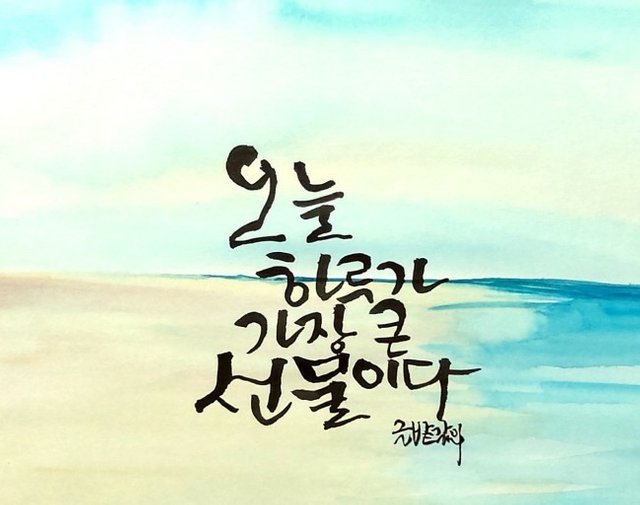 오늘
하루가
가장 큰
선물이다